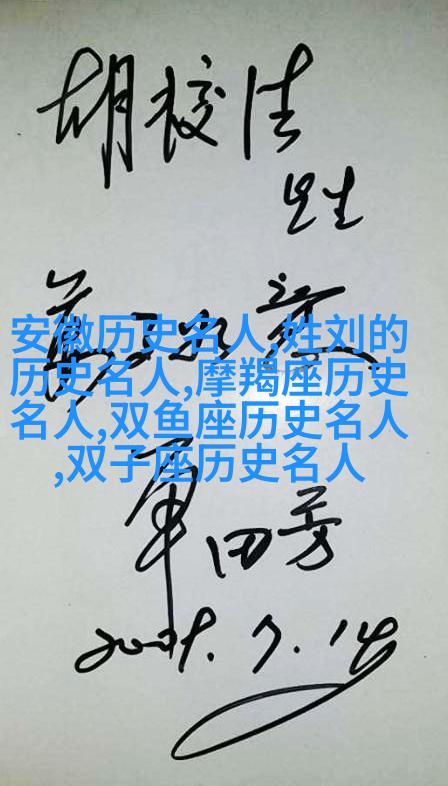 胡
生
安徽历史名人,姓刘的
历史名人,摩羯座历史
名人,双鱼座历史名人
,双子座历史名人
单田芳
7.14